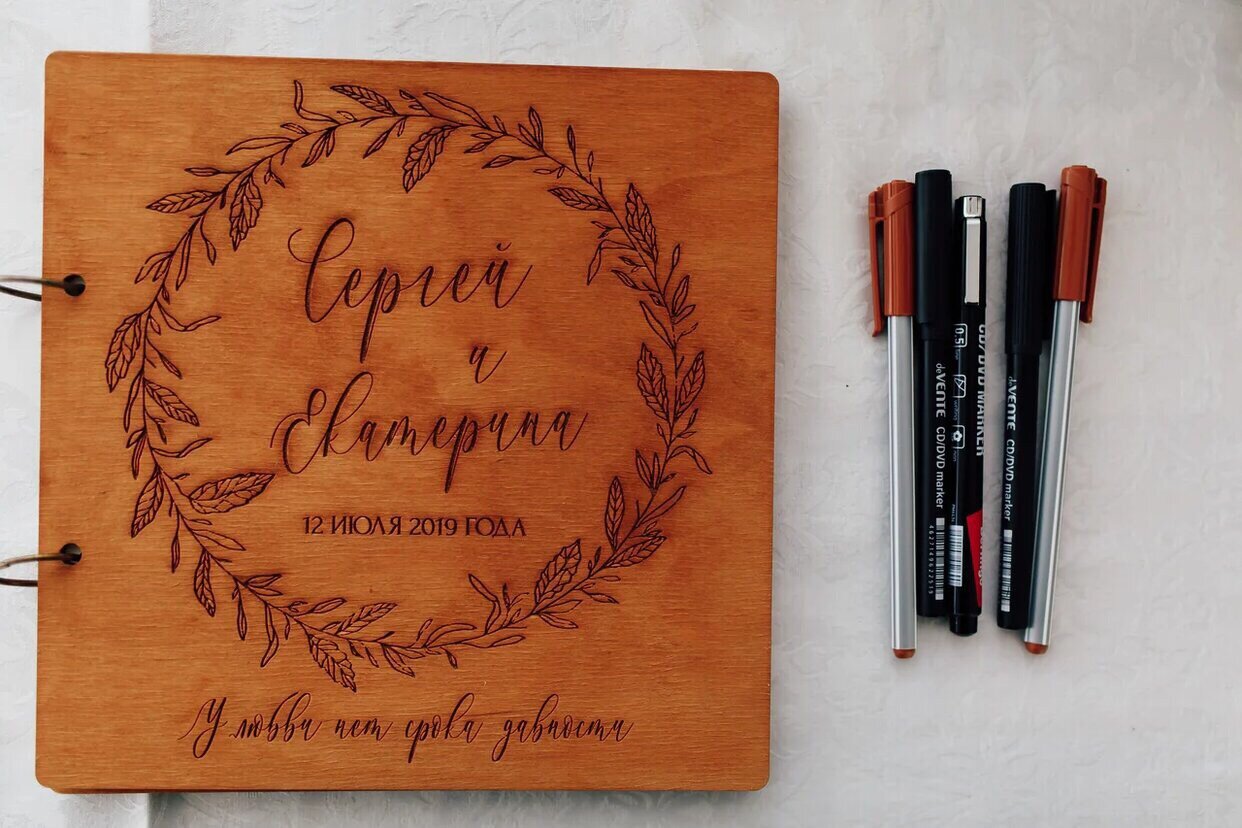 Сергей
и
Екатерина
12 ИЮЛЯ 2019 ГОДА
У любви нет срока давности
deVENTE CD/DVD marker
4627149622519
0.5
CD/DVD MARKER
deVENTE CD/DVD marker